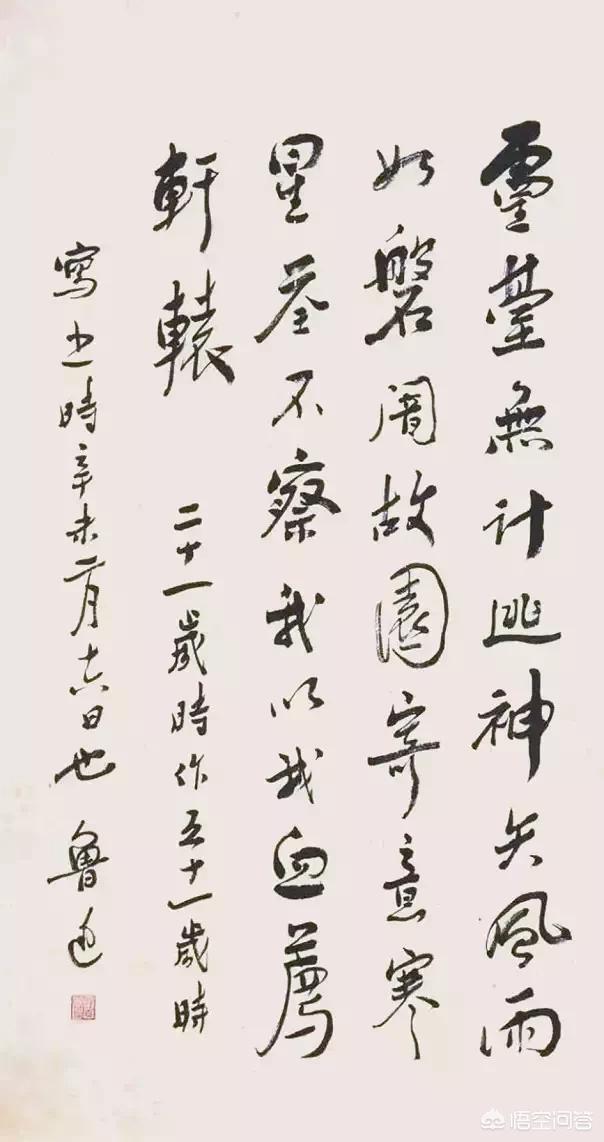 靈臺無計逃神矢風雨
如磐闇故園寄意寒
星荃不察我以我血薦
軒轅 二十一歲時作五十一歲時
寫之時辛未二月十六日也 魯迅
悟空问答